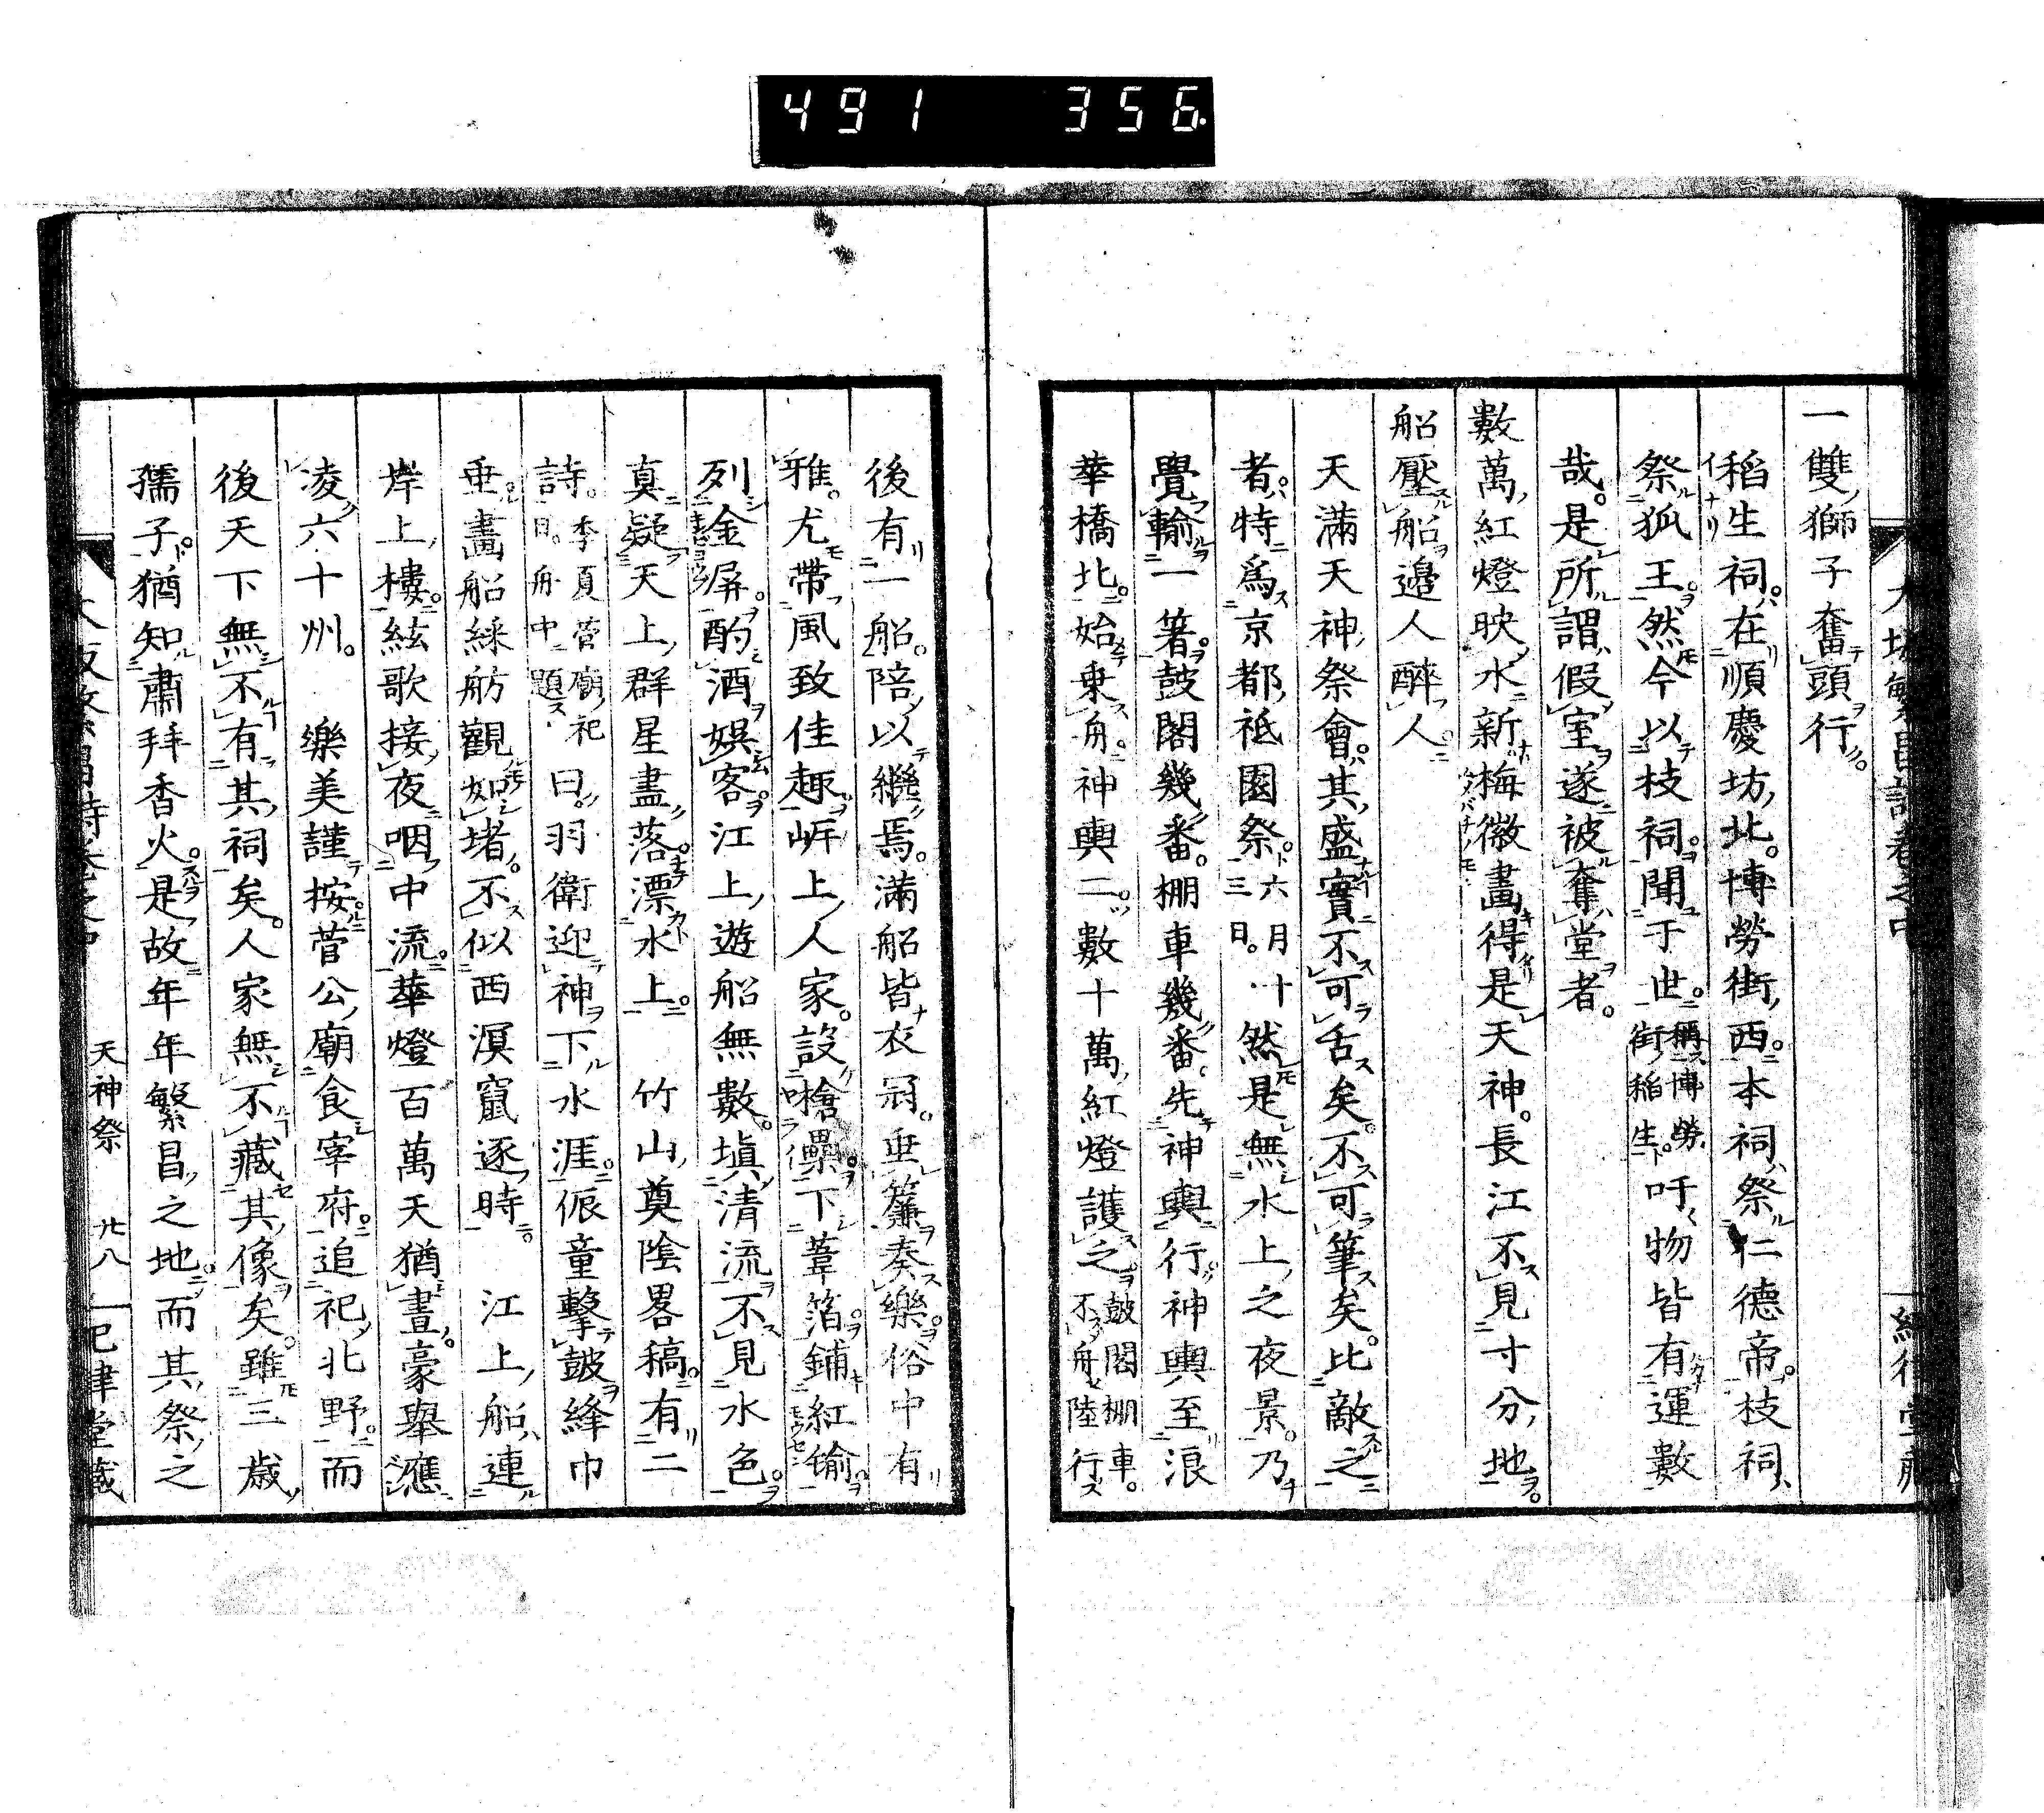 491 356
一雙獅子奮頭行
稻生祠在順慶坊北博勞街西本祠祭仁德帝枝祠
祭狐王然今以枝祠聞于世稱博勞街稲生吁物皆有運數
哉是所謂假室遂被奪堂者
數萬紅燈映水新梅徽畫得是天神長江不見寸分地
船壓船邉人醉人
天滿天神祭會其盛實不可舌矣不可筆矣比敵之
者特爲京都祗園祭六月十三日然是無水上之夜景乃
覺輸一箸鼓閣幾番棚車幾番先神輿行神輿至浪
華橋北始乗舟神輿二數十萬紅燈護之鼓閣棚車不舟陸行
後有一船陪以繼焉滿船皆衣冠垂簾奏樂俗中有
雅尤帶風致佳趣岍上人家設㘅罍下葦箔鋪紅
列金屏酌酒娯客江上遊船無數塡清流不見水色
真疑天上群星盡落漂水上 竹山奠陰畧稿有二
詩季夏菅廟祀日舟中題曰羽衛迎神下水涯侲童擊鼓絳巾
垂畫船綵舫觀如堵不似西溟竄逐時 江上船連
岸上樓絃歌接夜咽中流華燈百萬天猶晝豪舉應
凌六十州 樂美謹按菅公廟食宰府追祀北野而
後天下無不有其祠矣人家無不藏其像矣雖三歲
孺子猶知肅拜香火是故年年繁昌之地而其祭之
天神祭 廿八